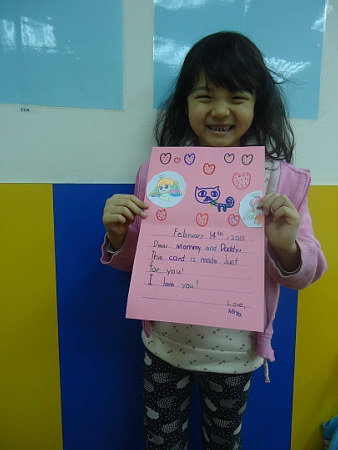 February 14th, 2013
Dear Mommy and Daddy,
This card is made just
for you!
I love you!
Love,